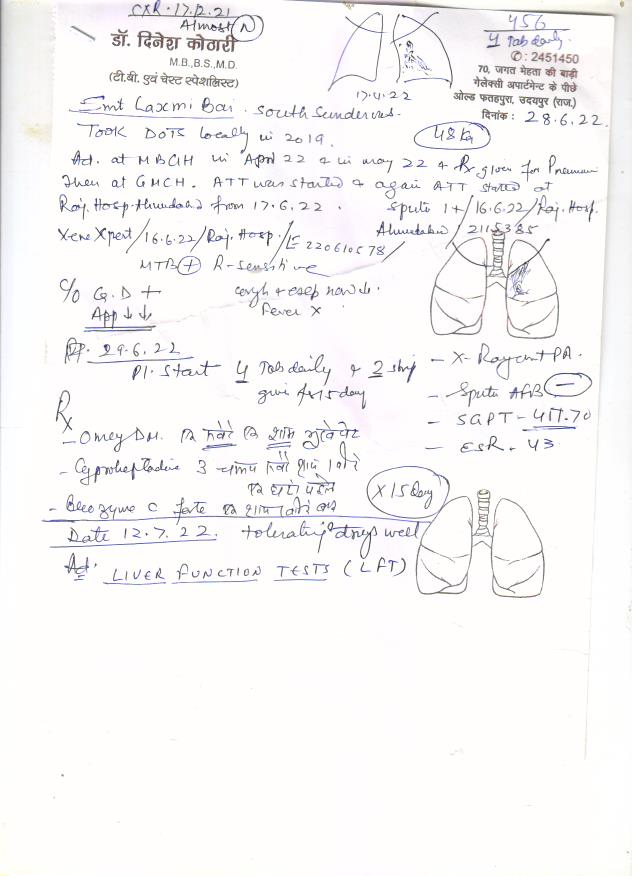 CXR. 17.12.21
Almost (N)
17.4.22
456
4 Tab daily.
डॉ. दिनेश कोठारी
M.B.,B.S.,M.D.
(टी.बी. एवं चेस्ट स्पेशलिस्ट)
✆: 2451450
70, जगत मेहता की बाड़ी
गेलेक्सी अपार्टमेन्ट के पीछे
ओल्ड फतहपुरा, उदयपुर (राज.)
दिनांक : 28.6.22.
Smt Laxmi Bai. South Sunderwas.
Took DOTS locally in 2019.
48 Kg
Ad. at MBGH in April 22 & in may 22 & Rx given for
Then at GMCH. ATT was started & again ATT started at
Raj. Hosp. Ahmedabad from 17.6.22. Sputu 1+/16.6.22/Raj. Hosp.
Ahmedabad/2115385
Xene Xpert/16.6.22/Raj. Hosp./LE 220610578/
MTB (+) R-sensitive
C/o G.D + cough & exep now ↓.
App ↓↓ Fever X
29.6.22
Pl. Start 4 Tab daily & 2 strip
give for 15 day
- X-Ray cont PA.
- Sputu AFB (-)
- SGPT - 417.70
- ESR - 43
Rx
- Omey DM. एक सवेरे एक शाम
- Cyproheptadine 3 चम्मच सवेरे शाम
- Beco zyme C forte एक शाम
X 15 day
Date 12.7.22. tolerating drugs well
Ad. LIVER FUNCTION TESTS (LFT)